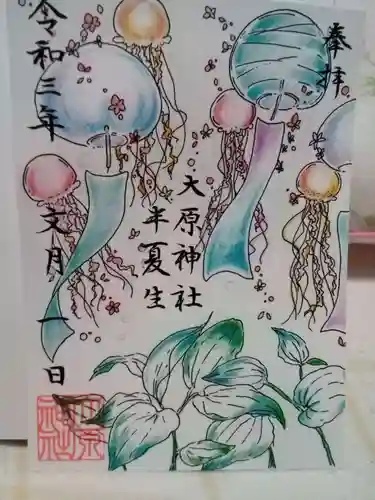 奉拝
大原神社
半夏生
令和三年
文月一日